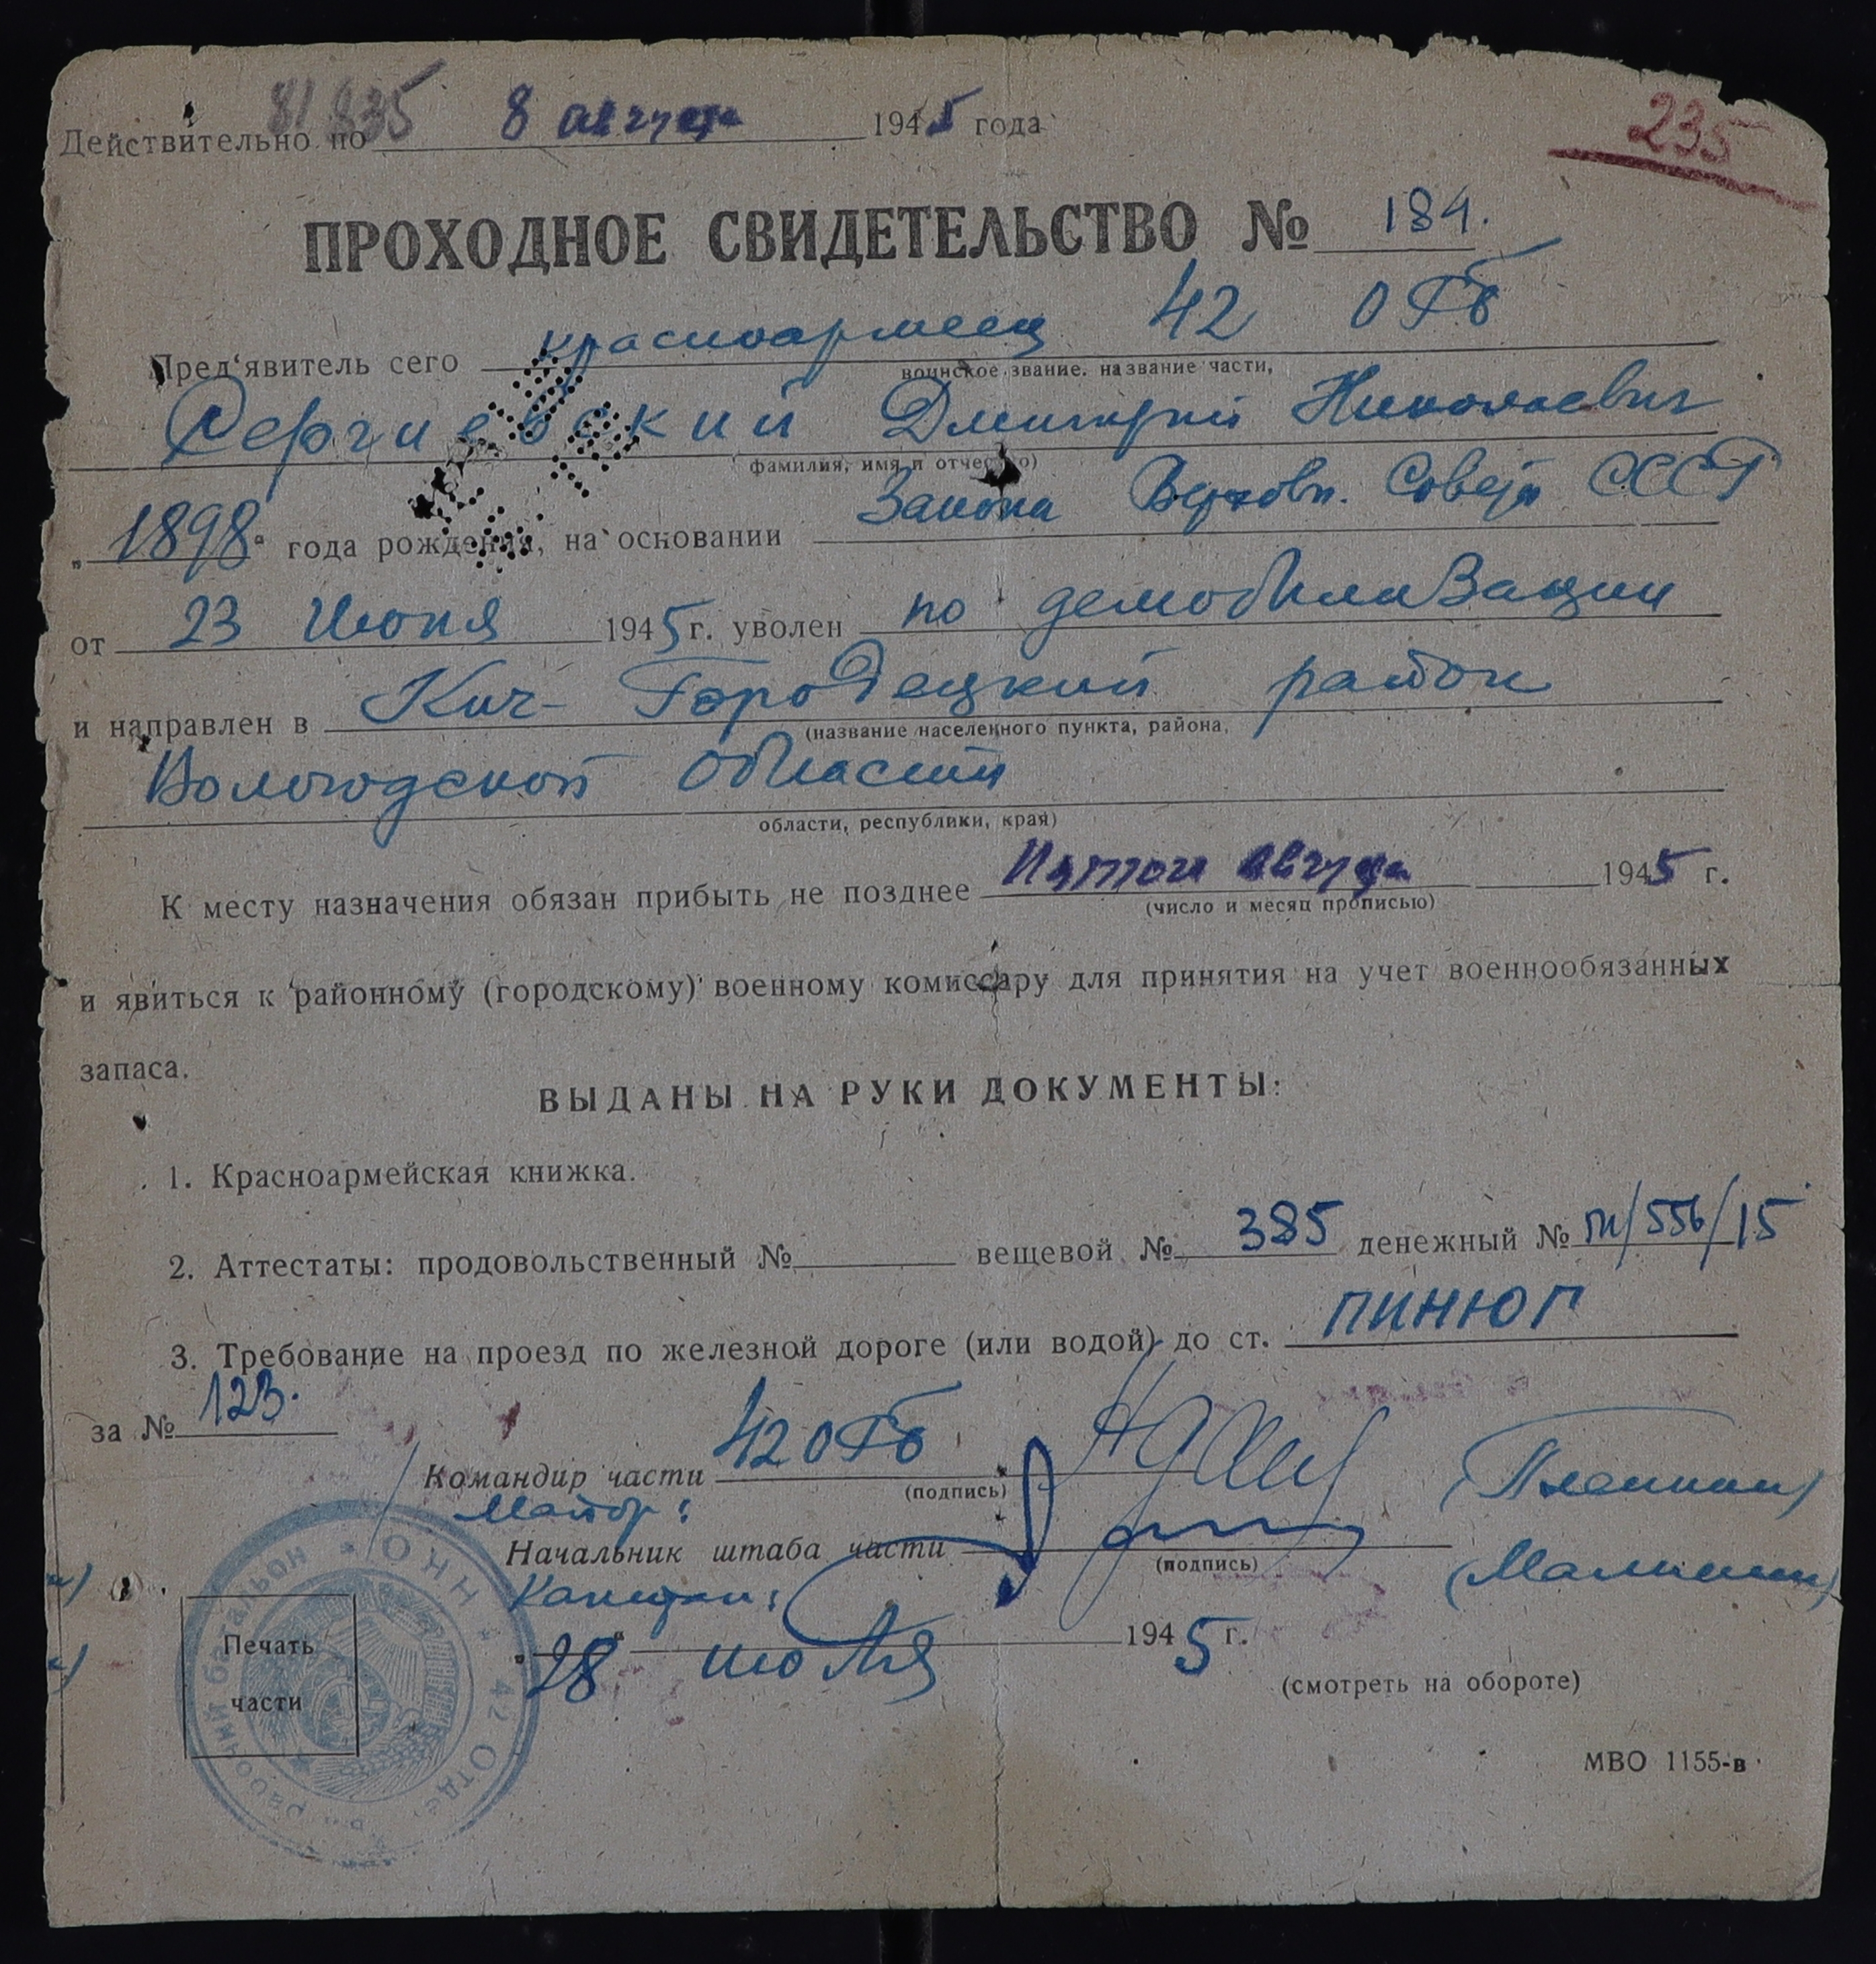 81835
Действительно по 8 августа 1945 года
235
ПРОХОДНОЕ СВИДЕТЕЛЬСТВО № 184.
Пред'явитель сего красноармеец 42 ОРБ
воинское звание. название части,
Сергиевский Дмитрий Николаевич
фамилия, имя и отчество)
„1898" года рождения, на основании Закона Верховн. Совета СССР
от 23 Июня 1945 г. уволен по демобилизации
и направлен в Кич-Городецкий район
(название населенного пункта, района,
Вологодской области
области, республики, края)
К месту назначения обязан прибыть не позднее Пятого августа 1945 г.
(число и месяц прописью)
и явиться к районному (городскому) военному комиссару для принятия на учет военнообязанных
запаса.
ВЫДАНЫ НА РУКИ ДОКУМЕНТЫ:
1. Красноармейская книжка.
2. Аттестаты: продовольственный № вещевой № 385 денежный № /556/15
3. Требование на проезд по железной дороге (или водой) до ст. ПИНЮГ
за № 123.
Командир части 42 ОРБ
(подпись)
Майор:
Начальник штаба части (Малинин)
(подпись)
Капитан:
„28" июля 1945 г.
Печать
части
(смотреть на обороте)
МВО 1155-в